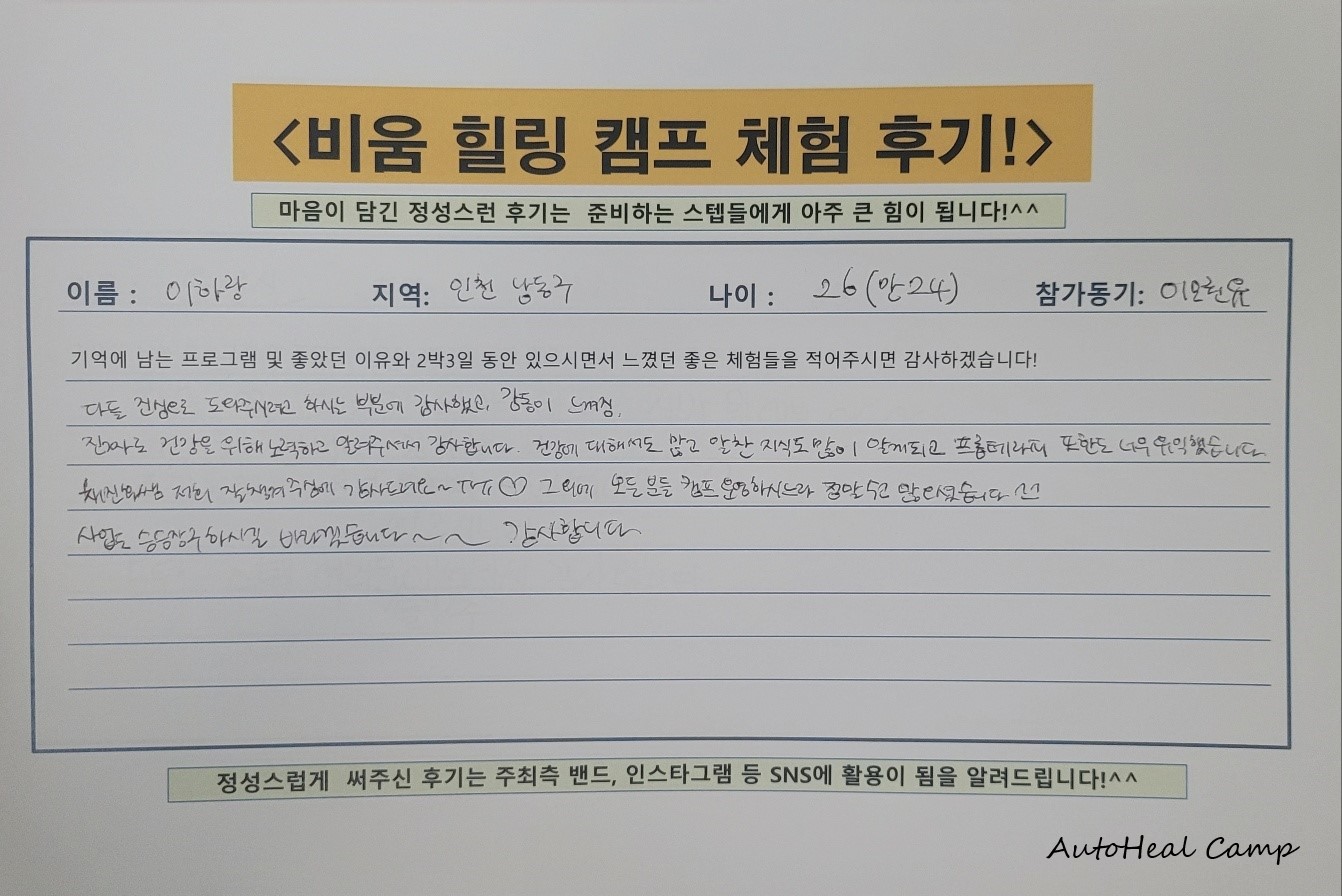 <비움 힐링 캠프 체험 후기!>
마음이 담긴 정성스런 후기는 준비하는 스텝들에게 아주 큰 힘이 됩니다!^^
이름 : 이하랑 지역: 인천 남동구 나이 : 26 (만 24) 참가동기: 이모권유
기억에 남는 프로그램 및 좋았던 이유와 2박3일 동안 있으시면서 느꼈던 좋은 체험들을 적어주시면 감사하겠습니다!
다들 진심으로 도와주시려고 하시는 부분에 감사했고, 감동이 느껴짐.
진짜로 건강을 위해 노력하고 알려주셔서 감사합니다. 건강에 대해서도 많고 알찬 지식도 많이 알게되고 프롭테라피 또한도 너무 유익했습니다
저희 잘챙겨주심에 감사드려요~ ㅠㅠ ♡ 그 외에 모든 분들 캠프 운영하시느라 정말 수고 많으셨습니다
사업도 승승장구 하시길 바라겠습니다~~~ 감사합니다
정성스럽게 써주신 후기는 주최측 밴드, 인스타그램 등 SNS에 활용이 됨을 알려드립니다!^^
AutoHeal Camp